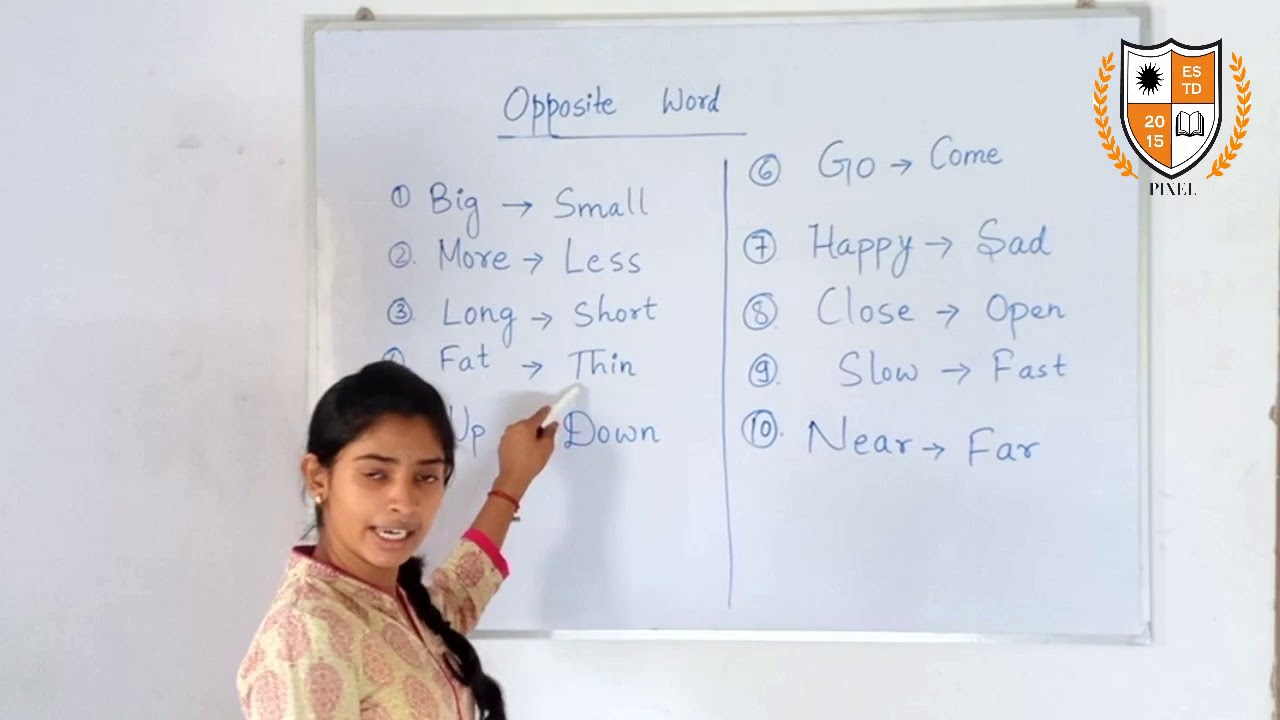 Opposite Word
① Big → Small
②. More → Less
③. Long → Short
Fat → Thin
Up Down
⑥ Go → Come
⑦ Happy → Sad
⑧. Close → Open
⑨. Slow → Fast
⑩. Near → Far
ES
TD
20
15
PIXEL